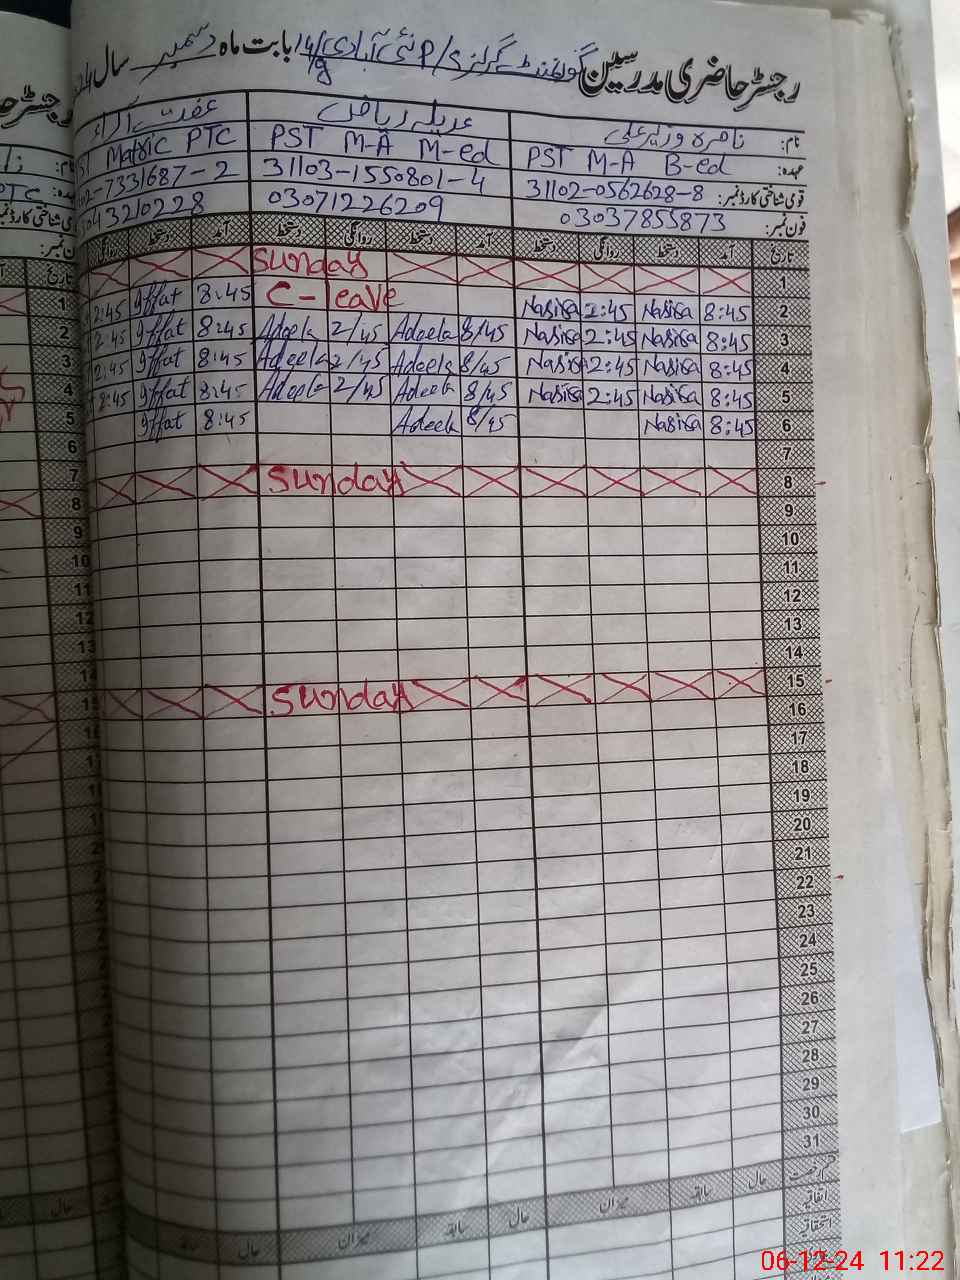 رجسٹر حاضری مدرسین گورنمنٹ گرلز P/S نئی آبادی 14/g بابت ماہ دسمبر سال
نام: ناصرہ وزیر علی عدیلہ ریاض عفت آراء
عہدہ: PST M-A B-ed PST M-A M-ed Matric PTC
قومی شناختی کارڈ نمبر: 31102-0562628-8 31103-1550801-4 02-7331687-2
فون نمبر: 03037855873 03071226209 043210228
تاریخ آمد دستخط روانگی دستخط آمد دستخط روانگی دستخط آمد دستخط روانگی
1 Sunday
2 8:45 Nasira 2:45 Nasira C-leave 8:45 Iffat 2:45
3 8:45 Nasira 2:45 Nasira 8/45 Adeela 2/45 Adeela 8:45 Iffat 2:45
4 8:45 Nasira 2:45 Nasira 8/45 Adeela 2/45 Adeela 8:45 Iffat 2:45
5 8:45 Nasira 2:45 Nasira 8/45 Adeela 2/45 Adeela 8:45 Iffat 2:45
6 8:45 Nasira 8/45 Adeela 8:45 Iffat
7
8 Sunday
9
10
11
12
13
14
15 Sunday
16
17
18
19
20
21
22
23
24
25
26
27
28
29
30
31
حال سابقہ میزان حال سابقہ میزان حال
اتفاقیہ
استحقاقیہ
06-12-24 11:22